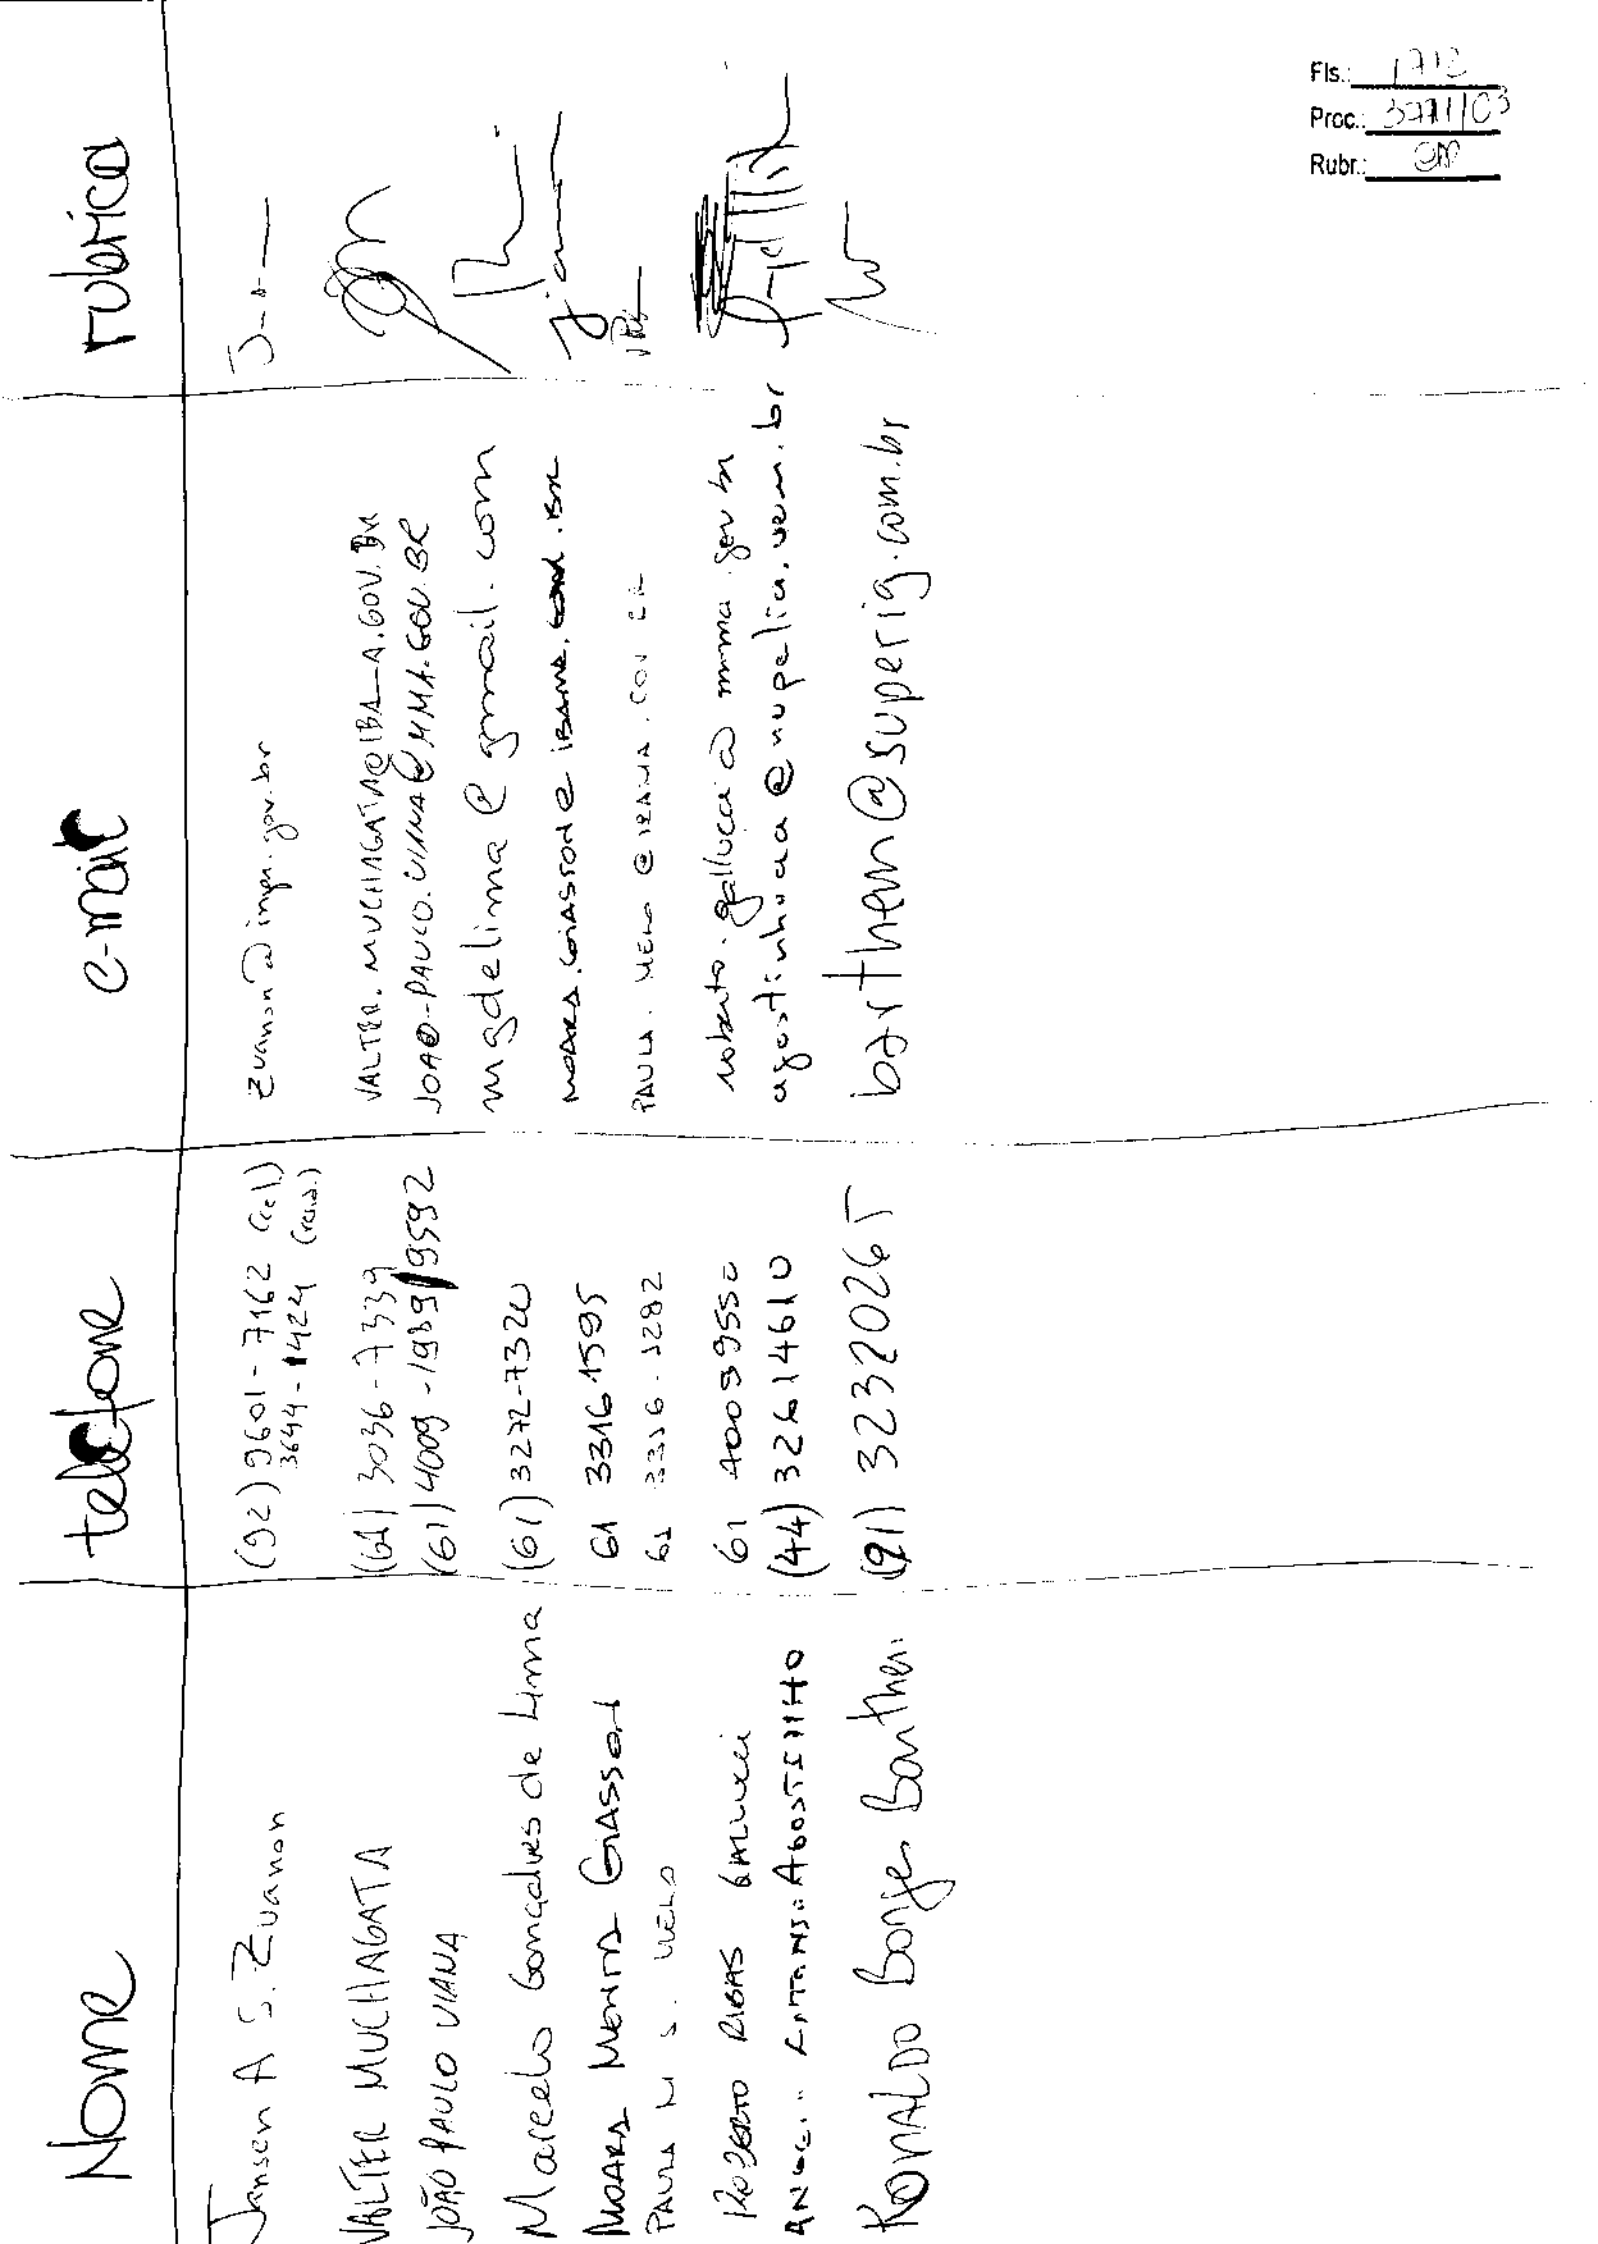 Nome telefone e-mail rubrica
Jansen A S. Zuanon (92) 9601-7162 (cel) zuanon@inpa.gov.br
3644-1424 (resid.)
VALTER MUCHAGATA (61) 3036-7339 VALTER.MUCHAGATA@IBA-A.GOV.BR
JOÃO PAULO VIANA (61) 4009-1989/9592 JOAO-PAULO.VIANA@MMA.GOV.BR
Marcelo Gonçalves de Lima (61) 3272-7320 mgdelima@gmail.com
MOARA MENTA GIASSON 61 33161595 MOARA.GIASSON@IBAMA.GOV.BR
PAULA M S. MELO 61 3316.1282 PAULA.MELO@IBAMA.GOV.BR
ROBERTO RIBAS GALLUCCI 61 4009955 roberto.gallucci@mma.gov.br
ANGELO ANTONIO AGOSTINHO (44) 32614610 agostinhoaa@nupelia.uem.br
RONALDO Borges Barthem (91) 32320265 barthem@superig.com.br
Fls.: 1712
Proc.: 3771/03
Rubr.: